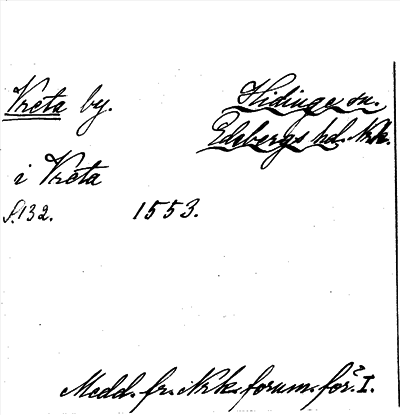 Vreta by.
Hidinge sn.
Edsbergs hd. Nrk.
i Vreta
S.132. 1553.
Medd. fr. Nrk. fornm. för. I.